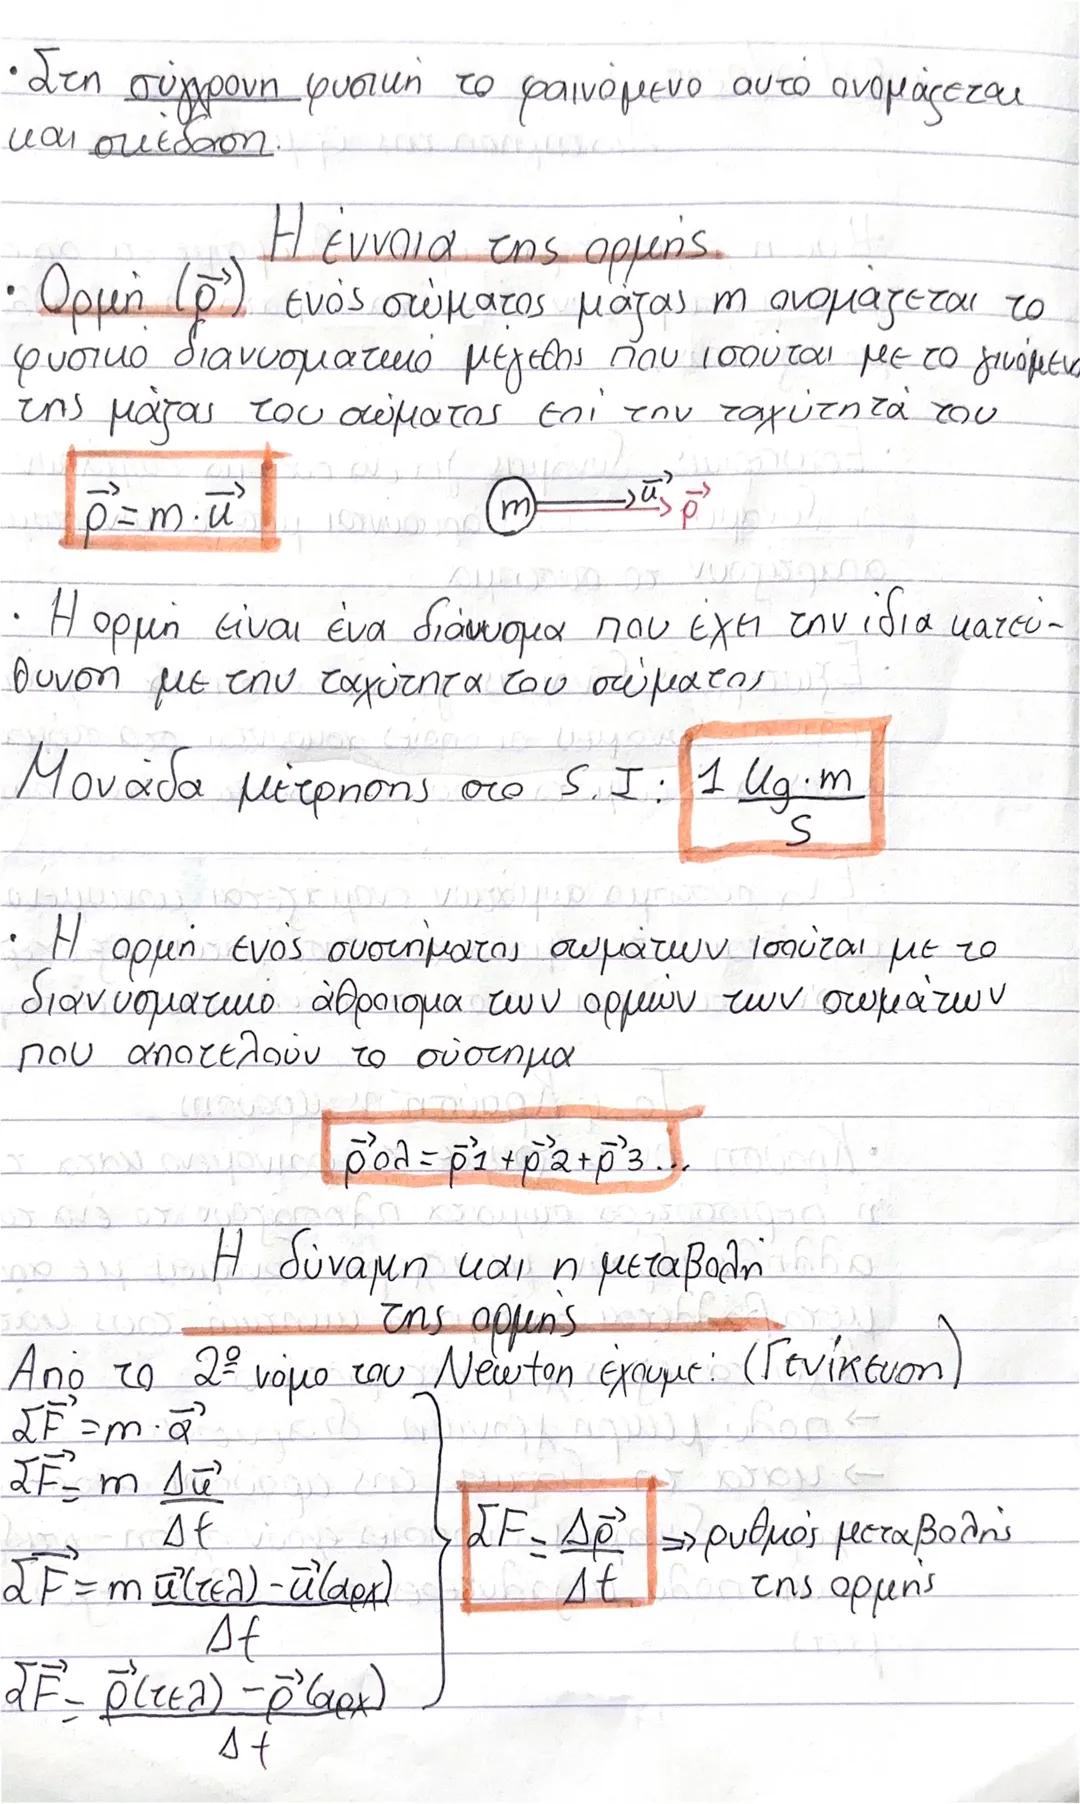 • Στη σύγχρονη φυσική το φαινόμενο αυτό ονομάζεται
και σκέδαση.
Η έννοια της ορμής
• Ορμή (p⃗) ενός σώματος μάζας m ονομάζεται το
φυσικό διανυσματικό μέγεθος που ισούται με το γινόμενο
της μάζας του σώματος επί την ταχύτητά του
p⃗ = m · u⃗
m u⃗ p⃗
• Η ορμή είναι ένα διάνυσμα που έχει την ίδια κατεύ-
θυνση με την ταχύτητα του σώματος
Μονάδα μέτρησης στο S.I: 1 Kg·m/s
• Η ορμή ενός συστήματος σωμάτων ισούται με το
διανυσματικό άθροισμα των ορμών των σωμάτων
που αποτελούν το σύστημα
p⃗ολ = p⃗1 + p⃗2 + p⃗3...
Η δύναμη και η μεταβολή
της ορμής
Από το 2º νόμο του Newton έχουμε: (Γενίκευση)
ΣF⃗ = m · α⃗
ΣF⃗ = m Δu⃗/Δt
ΣF⃗ = m u⃗(τελ) - u⃗(αρχ)/Δt
ΣF⃗ = p⃗(τελ) - p⃗(αρχ)/Δt
ΣF = Δp⃗/Δt => ρυθμός μεταβολής
της ορμής